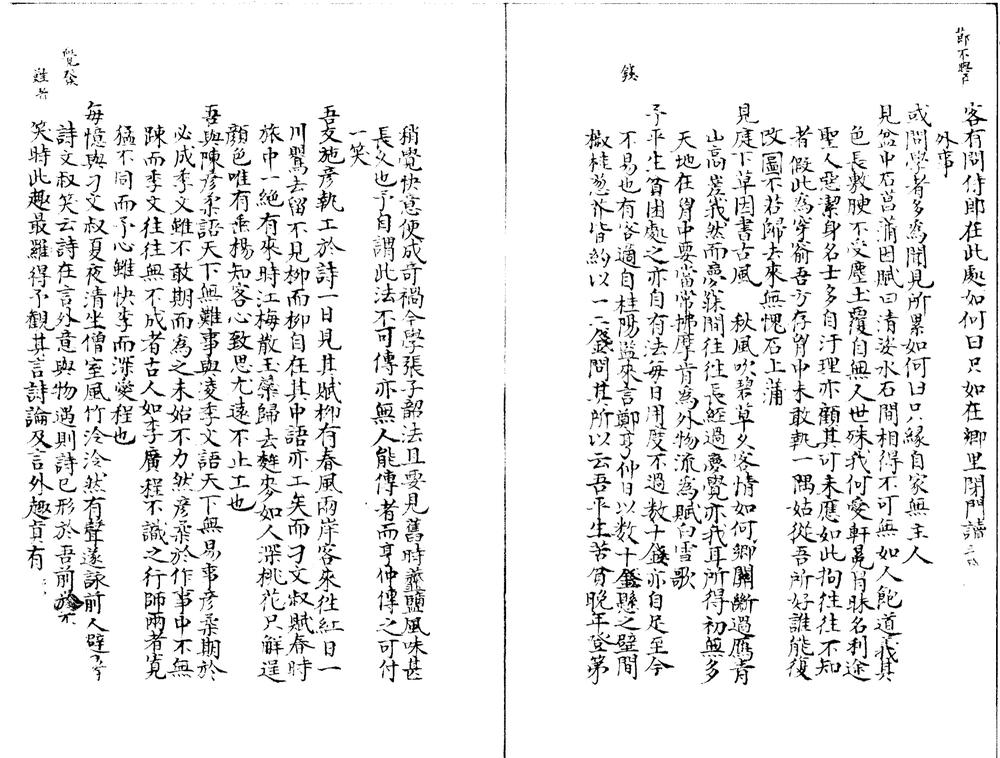 客有問侍郎在此處如何曰只如在鄉里閉門讀
外事
或問學者多為聞見所累如何曰只緣自家無主人
見盆中石菖蒲因賦曰清姿水石間相得不可無如人飽道義其
色長敷腴不受塵土覆自無人世殊我何愛軒冕肯昧名利途
聖人惡潔身名士多自汙理亦顧其可未應如此拘往往不知
者假此為穿窬吾方存胷中未敢執一隅姑從吾所好誰能復
改圖不若歸去來無愧石上蒲
見庭下草因書古風 秋風吹碧草夕客情如何鄉關斷過鴈青
山高峩我然而夢寐間往往長經過夢覺亦我耳所得初無多
天地在胷中要當常拂摩肯為外物流為賦白雪歌
予平生貧困處之亦自有法每日用度不過數十錢亦自足至今
不易也有客適自桂陽監來言鄭亨仲日以數十錢懸之壁間
椒桂葱芥皆約以一二錢問其所以云吾平生苦貧晚年登第
稍覺快意便成奇禍今學張子韶法且要見舊時虀鹽風味甚
長久也予自謂此法不可傳亦無人能傳者而亨仲傳之可付
一笑
吾友施彦執工於詩一日見其賦柳有春風兩岸客來往紅日一
川鶯去留不見柳而柳自在其中語亦工矣而刁文叔賦春時
旅中一絕有來時江梅散玉蘂歸去麰麥如人深桃花只解逞
顔色唯有垂楊知客心致思尤遠不止工也
吾與陳彦柔語天下無難事與凌季文語天下無易事彦柔期於
必成季文雖不敢期而為之未始不力然彦柔於作事中不無
踈而季文往往無不成者古人如李廣程不識之行師兩者寬
猛不同而予心雖快李而深愛程也
每憶與刁文叔夏夜清坐僧室風竹泠泠然有聲遂詠前人
詩文叔笑云詩在言外意與物遇則詩已形於吾前
笑時此趣最難得予觀其言詩論及言外趣真有